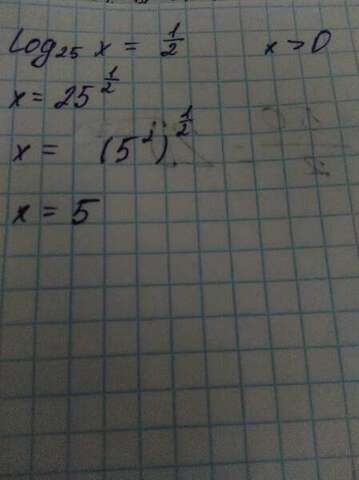 log₂₅ x = 1/2 x > 0
x = 25^(1/2)
x = (5²)^(1/2)
x = 5